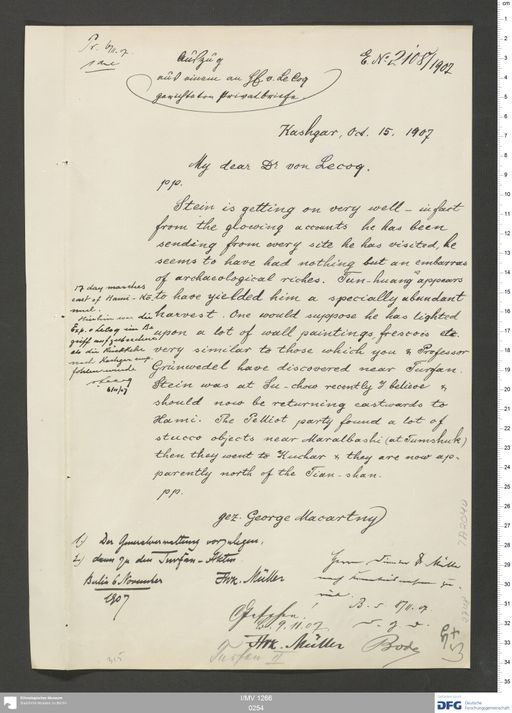 Pr. 6/11. 07.
Auszug
aus einem an Hr. v. Le Coq
gerichteten Privatbriefe.
E. No 2108/1907
Kashgar, Oct. 15. 1907
My dear Dr von Lecoq.
pp.
Stein is getting on very well – in fact
from the glowing accounts he has been
sending from every site he has visited, he
seems to have had nothing but an embarras
of archaeological riches. Tun-huang appears
to have yielded him a specially abundant
harvest. One would suppose he has lighted
upon a lot of wall paintings, frescois etc.
very similar to those which you & Professor
Grünwedel have discovered near Turfan.
Stein was at Su-chow recently I believe &
should now be returning eastwards to
Hami. The Pelliot party found a lot of
stucco objects near Maralbashi (at Tumshuk)
then they went to Kuchar & they are now ap-
parently north of the Tian-shan.
pp.
gez. George Macartny
17 day marches
east of Hami - KE.
Hierhin war die
Exp. v. Lecoq im Be
griff aufzubrechen
als die Rückkehr
nach Kashgar emp
fohlen wurde
v Lecoq
6/11/07
1.) Der Generalverwaltung vorzulegen,
2.) dann zu den Turfan-Akten.
Berlin 6. November
1907
Frk. Müller
Herrn Direktor F. W. Müller
nach Kenntnisnahme zu-
rück.
B. d. 8/11. 07.
Bode
Gesehen!
B. 9. 11. 07
Frk. Müller
Turfan II
315
I/MV 1266
0254
Ethnologisches Museum
Staatliche Museen zu Berlin
DFG Deutsche
Forschungsgemeinschaft